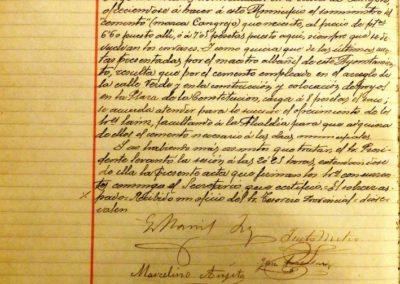 ofreciendose á hacer á este Municipio el suministro de
cemento (marca Cangrejo) que necesite, al precio de ptas
6'60 puesto alli, ó á 7'95 pesetas puesto aqui, siempre que se de-
vuelvan los envases. Y como quiera que de las últimas cuen-
tas presentadas por el maestro albañil de este Ayuntamien-
to, resulta que por el cemento empleado en el arreglo de
la calle y en la construcción y colocación de
en la Plaza de la Constitución, carga á 8 pesetas el saco;
se acuerda atender para lo sucesivo el ofrecimiento de los
Sres facultando á la Alcaldía para que adquiera
de ellos el cemento necesario á las obras municipales.
Y no habiendo más asuntos que tratar, el Sr. Presi-
dente levantó la sesión á las horas, extendiendose
de ella la presente acta que firman los Sres concurren-
tes conmigo el Secretario que certifico. El sobre ras-
pado: Recibido un oficio del Sr. Tesorero Provincial: dice
valen.
Justo
Marcelino